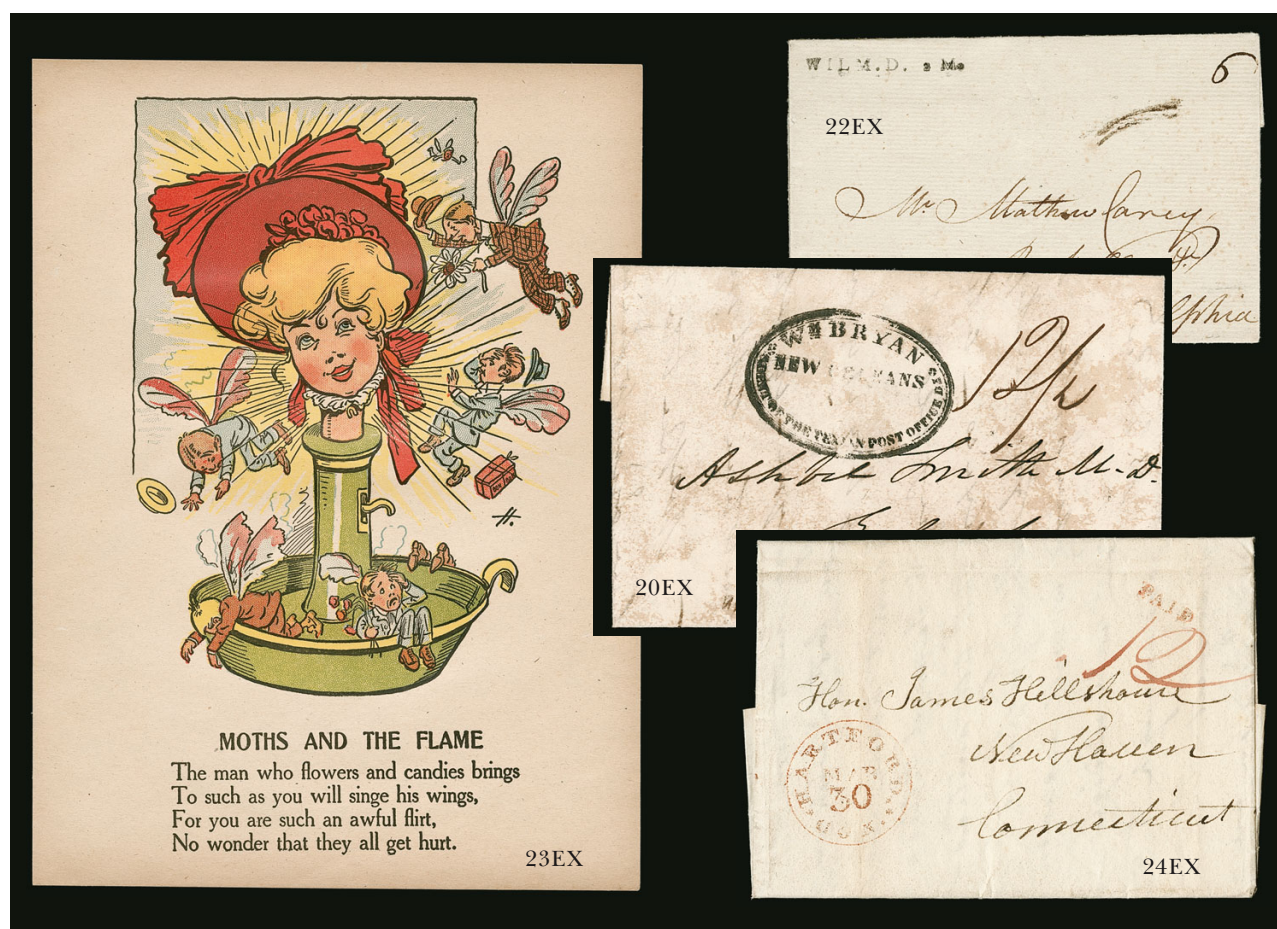 MOTHS AND THE FLAME
The man who flowers and candies brings
To such as you will singe his wings,
For you are such an awful flirt,
No wonder that they all get hurt.
23EX
H.
WILM.D. 2 Mo
6
22EX
Mr Mathew Carey
lphia
Wm BRYAN
NEW ORLEANS
OF THE TEXIAN POST OFFICE DEPT
12½
Ashbel Smith M.D.
20EX
PAID
12
Hon. James Hillhouse
New Haven
Connecticut
HARTFORD CON.
MAR
30
24EX